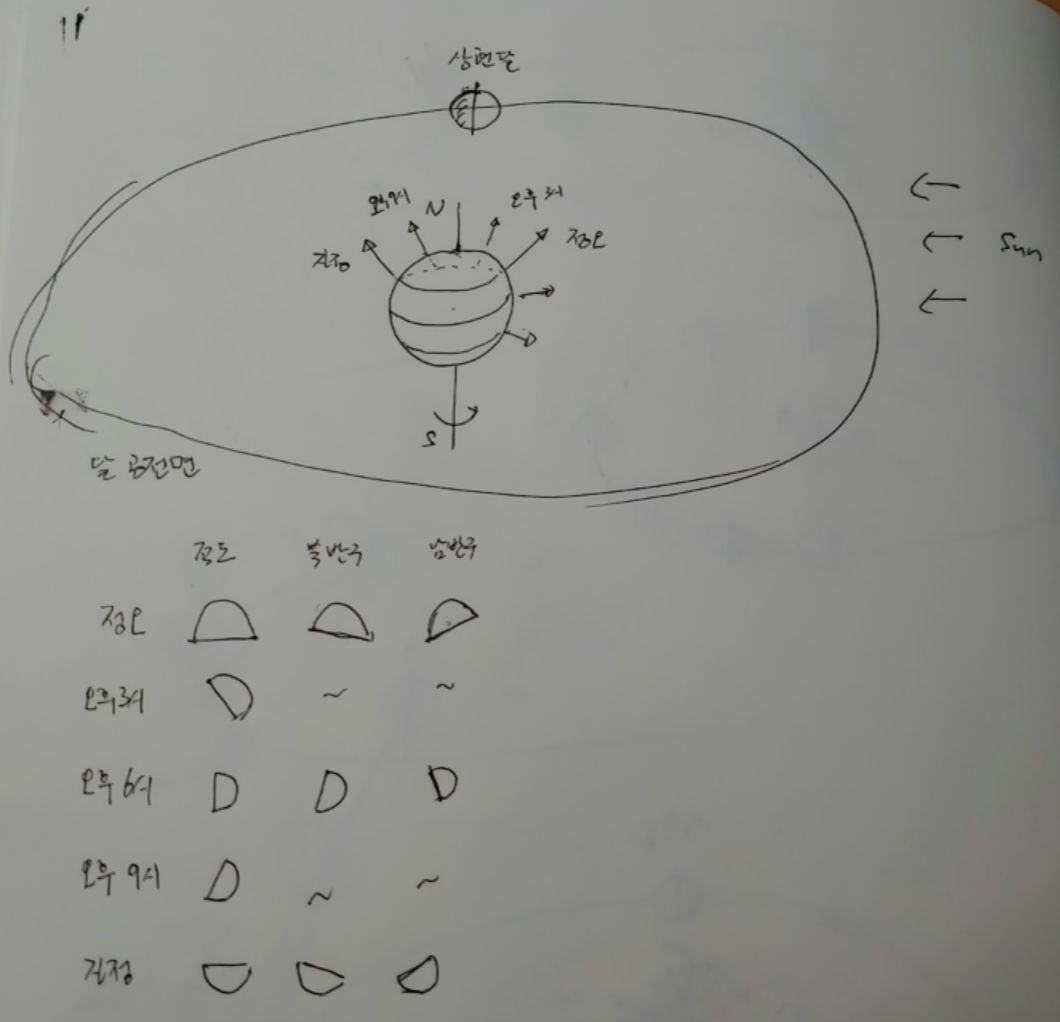 11
상현달
오후9시 N 오후3시
걸정 정오
Sun
S
달 공전면
적도 북반구 남반구
정오
오후3시 ~ ~
오후 6시
오후 9시 ~ ~
걸정